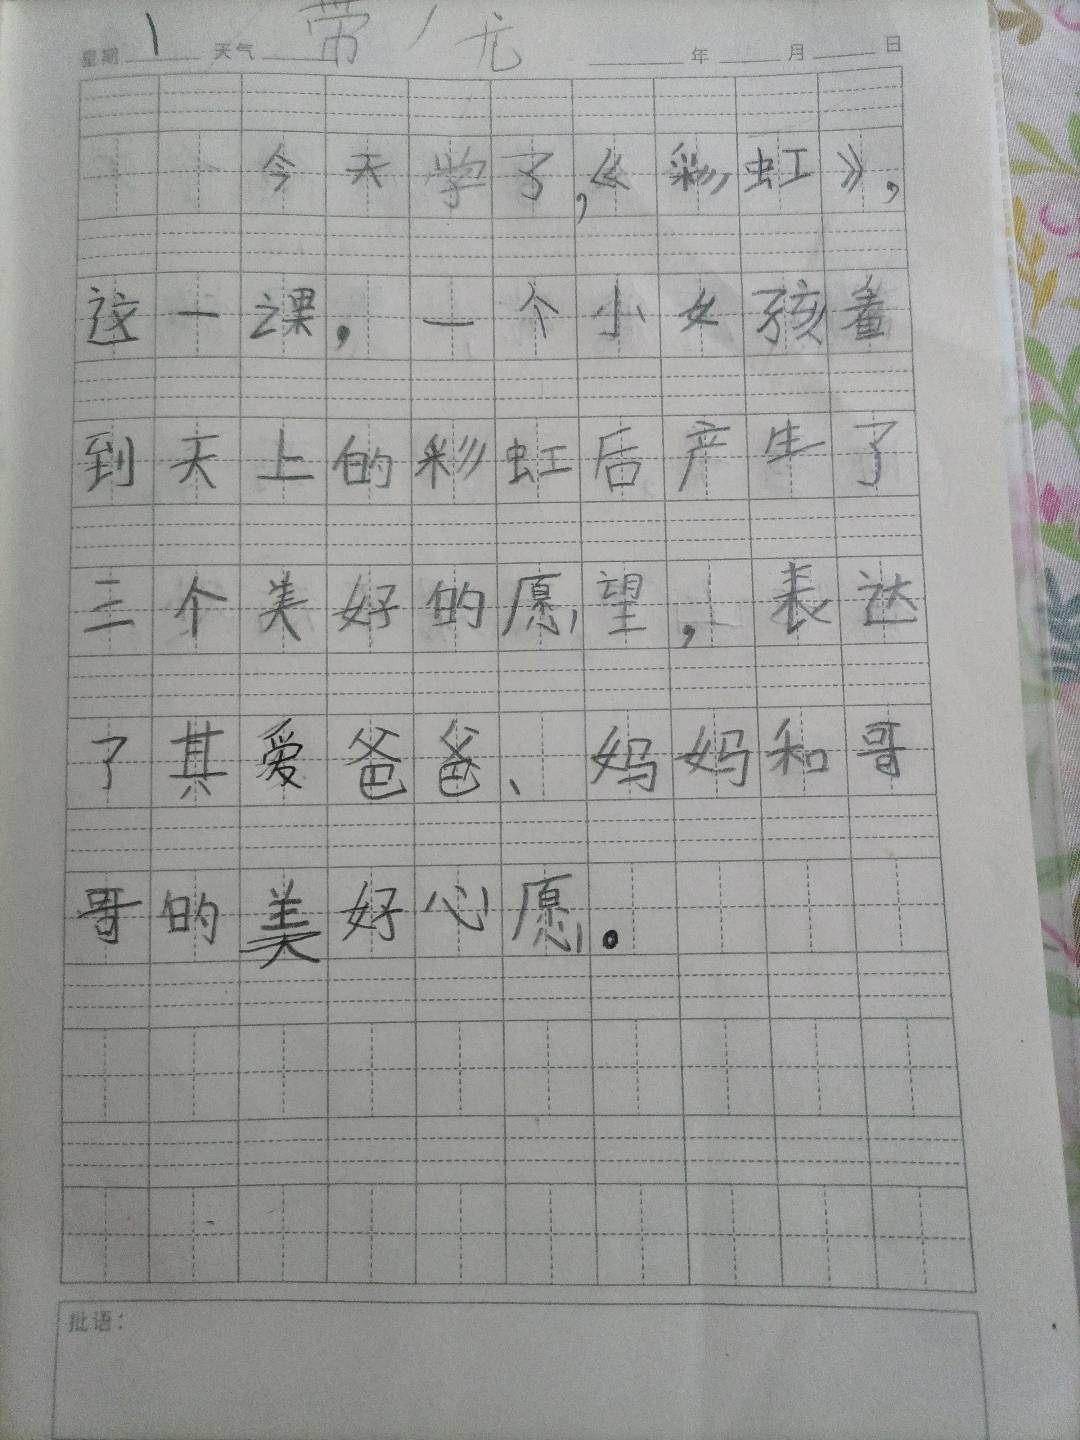 星期 1 天气 年 月 日
今天学了，《彩虹》，
这一课，一个小女孩着
到天上的彩虹后产生了
三个美好的愿望，表达
了其爱爸爸、妈妈和哥
哥的美好心愿。
批语：